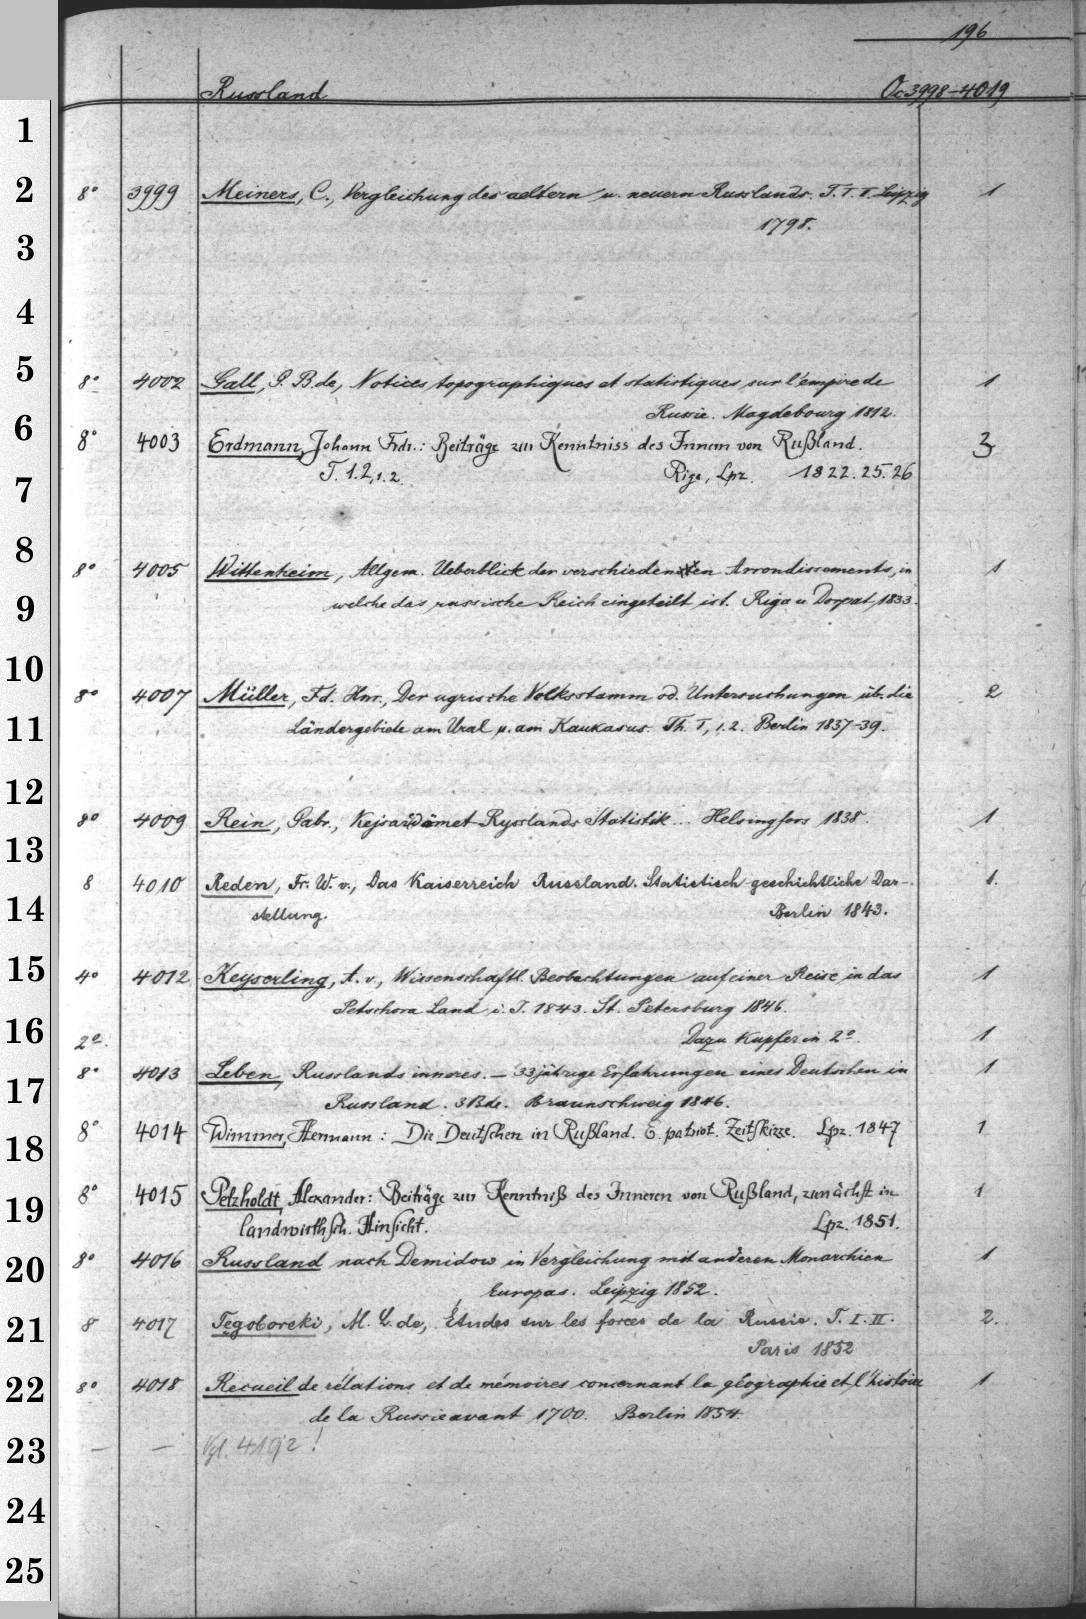 196
Russland Oc 3998-4019
1
2 8° 3999 Meiners, C., Vergleichung des aeltern u. neuern Russlands. T. I. II. Leipzig 1
1798.
3
4
5 8° 4002 Gall, P. B. de, Notices topographiques et statistiques sur l'empire de 1
Russie. Magdebourg 1812.
6 8° 4003 Erdmann, Johann Frdr.: Beiträge zur Kenntniss des Innern von Rußland. 3
7 T. 1. 2,1.2. Riga, Lpz. 1822. 25. 26
8 8° 4005 Wittenheim, Allgem. Ueberblick der verschiedenen Arrondissements, in 1
9 welche das russische Reich eingeteilt ist. Riga u Dorpat, 1833.
10
8° 4007 Müller, Fd. Hnr., Der ugrische Volksstamm od. Untersuchungen üb. die 2
11 Ländergebiete am Ural u. am Kaukasus. Th. I, 1.2. Berlin 1837-39.
12
8° 4009 Rein, Gabr., Kejsardömet Rysslands Statistik... Helsingfors 1838. 1
13
8 4010 Reden, Fr. W. v., Das Kaiserreich Russland. Statistisch-geschichtliche Dar- 1.
14 stellung. Berlin 1843.
15 4° 4012 Keyserling, A. v., Wissenschaftl. Beobachtungen auf einer Reise in das 1
Petschora Land i. J. 1843. St. Petersburg 1846.
16 2° Dazu Kupfer in 2° 1
8° 4013 Leben, Russlands inneres. — 33jährige Erfahrungen eines Deutschen in 1
17 Russland. 3 Bde. Braunschweig 1846.
18 8° 4014 Wimmer, Hermann: Die Deutschen in Rußland. E. patriot. Zeitskizze. Lpz. 1847 1
19 8° 4015 Petzholdt, Alexander: Beiträge zur Kenntniß des Inneren von Rußland, zunächst in 1
landwirthsch. Hinsicht. Lpz. 1851.
20 8° 4016 Russland nach Demidow in Vergleichung mit anderen Monarchien 1
Europas. Leipzig 1852.
21 8 4017 Tęgoborski, M. L. de, Études sur les forces de la Russie. T. I. II. 2.
Paris 1852
22 8° 4018 Recueil de rélations et de mémoires concernant la géographie et l'histoire 1
de la Russie avant 1700. Berlin 1854.
23 — — Vgl. 4192!
24
25